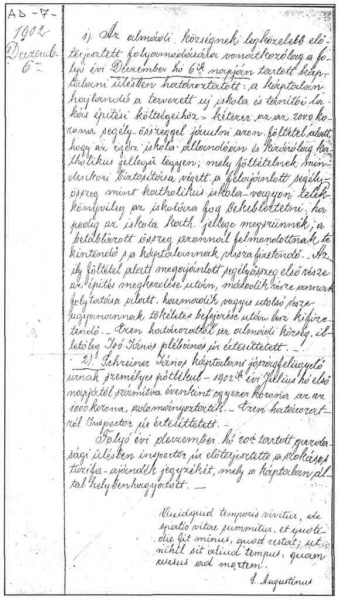 AD-7-
1902
Deczem.
6-
1) Az almádi községnek legközelebb elő-
terjesztett folyamodására vonatkozólag a fo-
lyó évi Deczember hó 6ik napján tartott káp-
talani ülésben határoztatott: a káptalan
hajlandó a tervezett új iskola és tanítói la-
kás építési költségeihez kétezer az az 2000 ko-
rona segély-összeggel járulni azon föltétel alatt
hogy az egész iskola állandóan és kizárólag ka-
tholikus jellegű legyen; mely föltételnek min-
denkori biztosítása végett a felajánlott segély-
összeg mint katholikus iskola-vagyon telek-
könyvileg az iskolára fog bekebleztetni; ha
pedig az iskola kath. jellege megszünnék; a
betáblázott összeg azonnal felmondottnak te-
kintendő s a káptalannak visszafizetendő. Az
ily föltétel alatt megajánlott segélyösszeg első része
az építés megkezdése után, második része annak
folytatása alatt, harmadik vagyis utolsó része
ugyanannak tökéletes befejezése után lesz kifize-
tendő. — Ezen határozatról az almádi község, il-
letőleg Ivó János plébános úr értesíttetett. —
2) Schreiner János káptalani jószágfelügyelő
úrnak személyes pótlékul 1902ik évi Július hó első
napjától számítva évenkint egyezer korona az az
1000 korona adományoztatik. — Ezen határozat-
ról Inspector úr értesíttetett. —
Folyó évi deczember hó 20án tartott gazda-
sági ülésben inspector úr előterjesztette a szokásos
tűzifa-ajándék jegyzékét, mely a káptalan ál-
tal helybenhagyatott. —
Quidquid temporis vivitur, de
spatio vitae summitur, et quoti-
die fit minus, quod restat; ut
nihil sit aliud tempus, quam
cursus ad mortem.
S. Augustinus